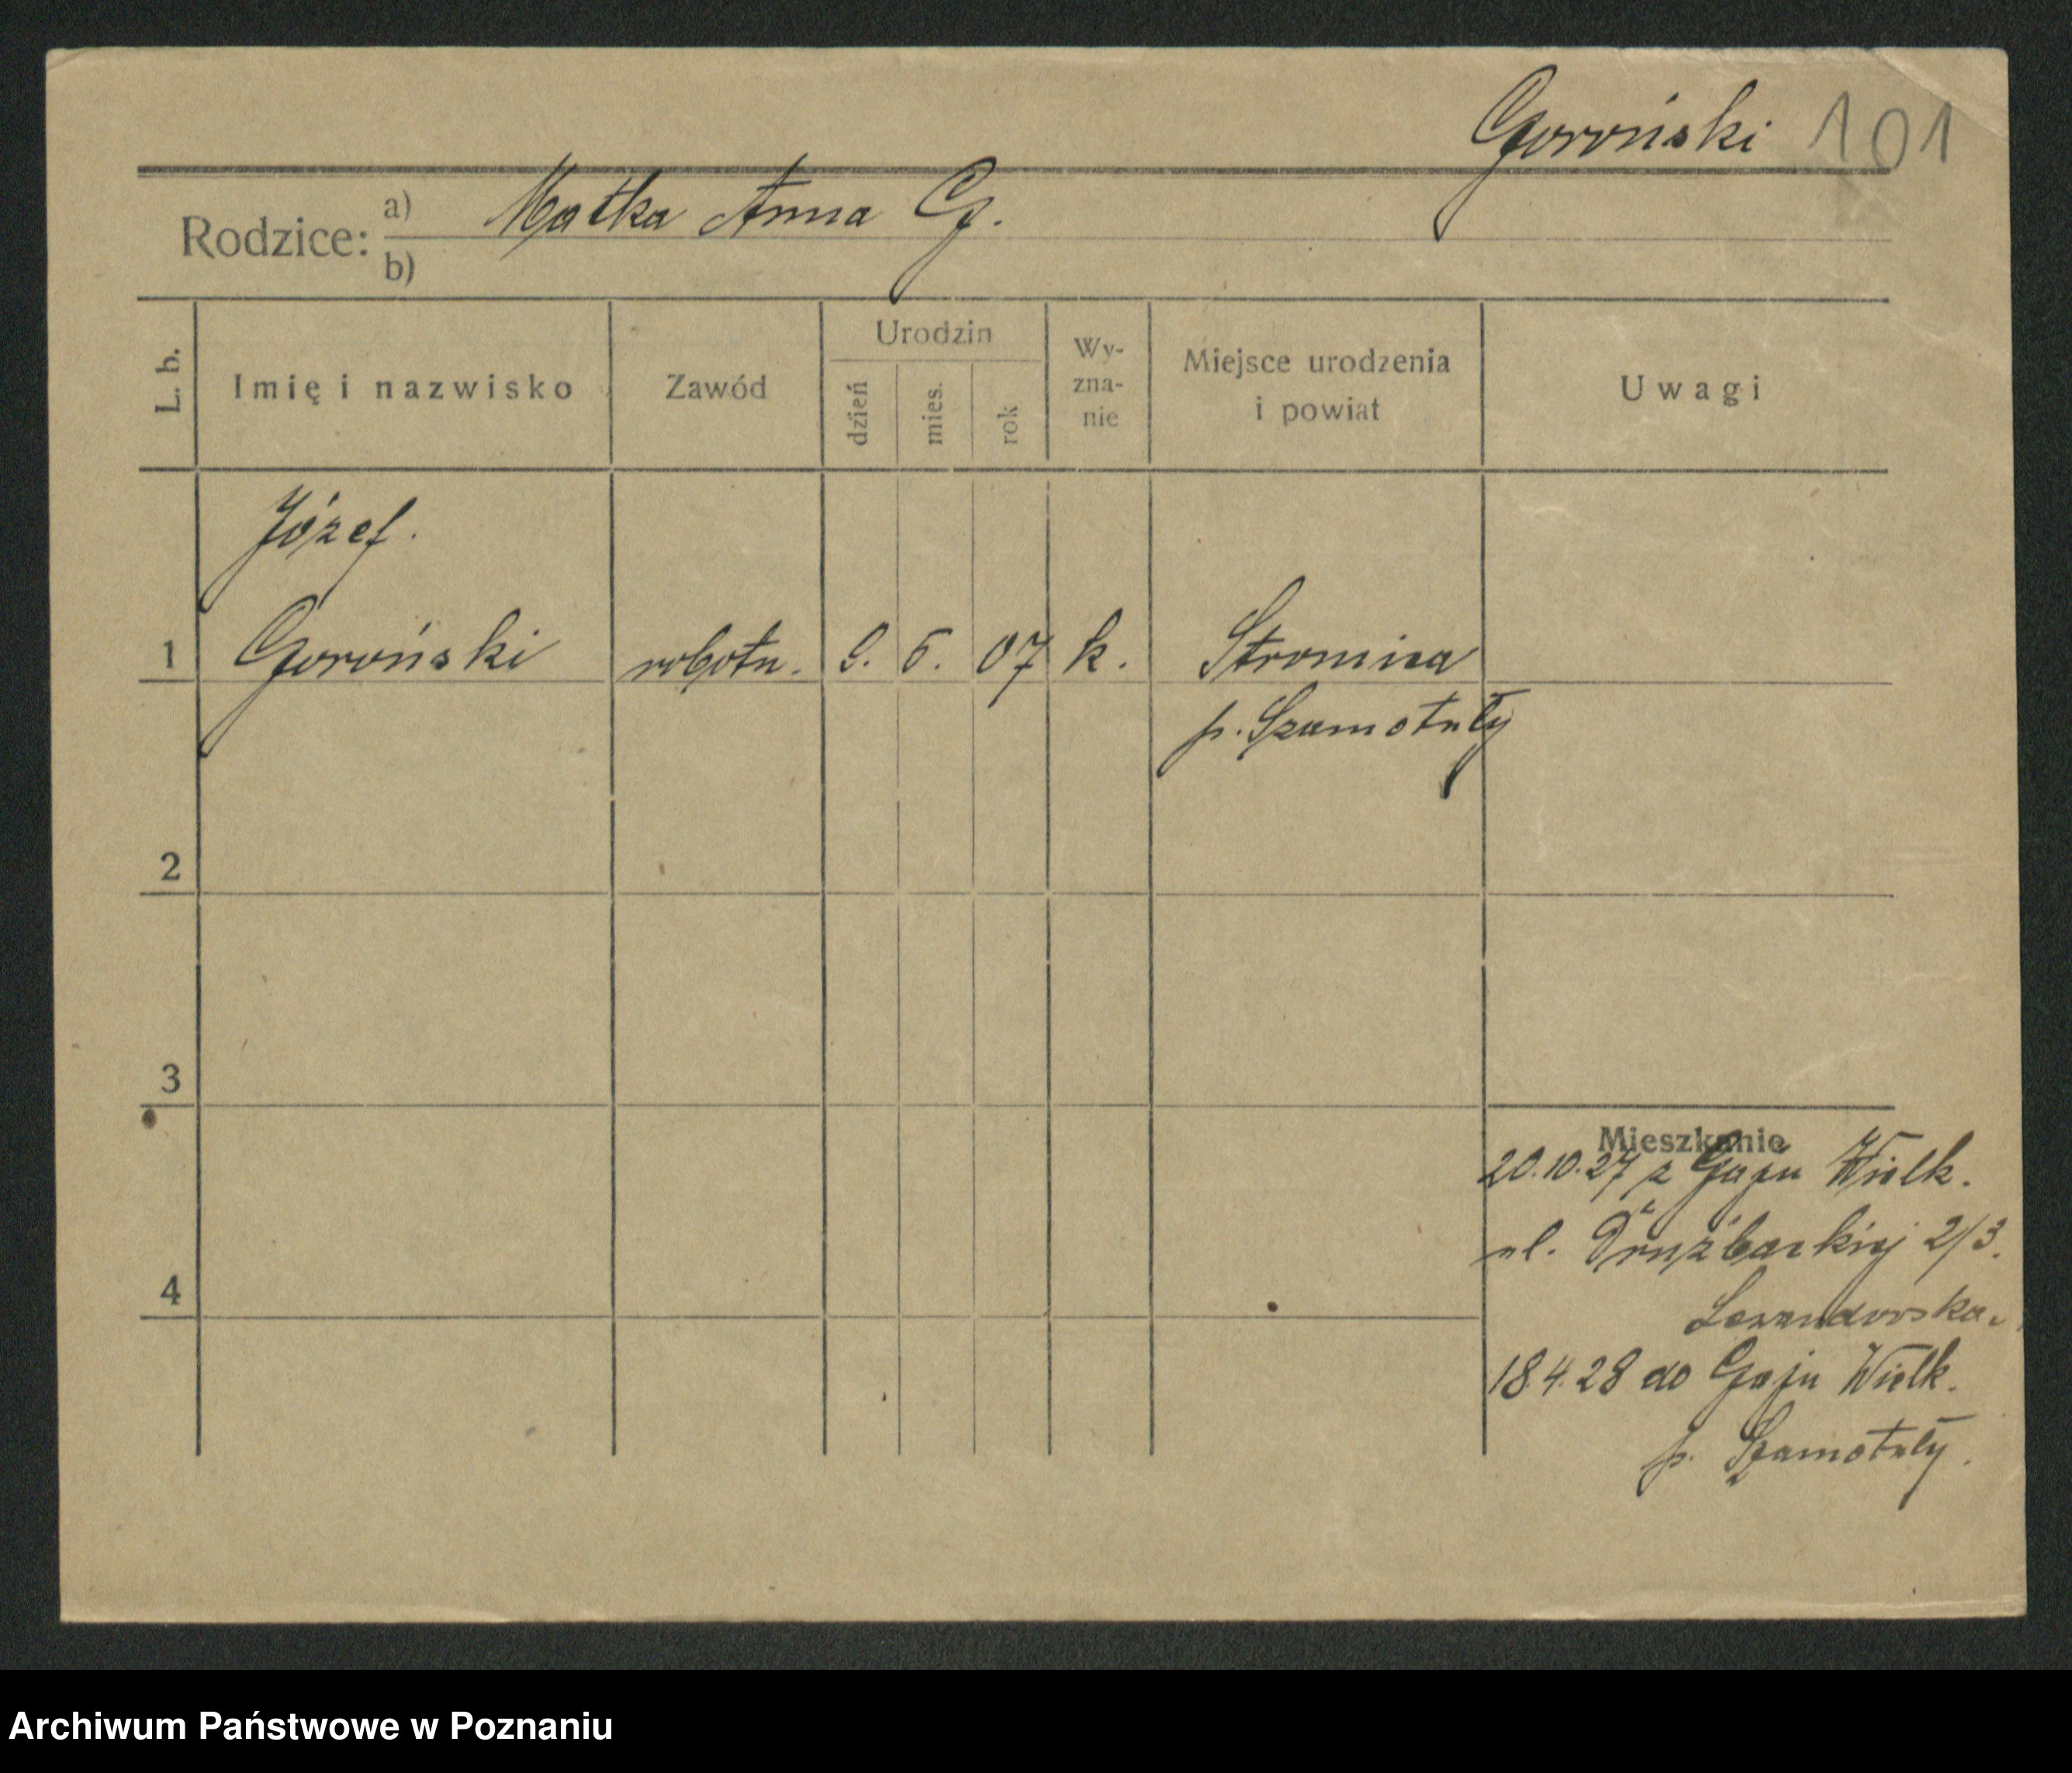 Goroński 101
Rodzice: a) Matka Anna G.
b)
L. b. Imię i nazwisko Zawód Urodzin dzień mies. rok Wy-zna-nie Miejsce urodzenia i powiat Uwagi
Józef.
1 Goroński robotn. 9. 6. 07 k. Stromina
p. Szamotuły
2
3
Mieszkanie
20.10.27 z Gaju Wielk.
ul. Drużbackiej 2/3.
4
18.4.28 do Gaju Wielk.
p. Szamotuły.
Archiwum Państwowe w Poznaniu